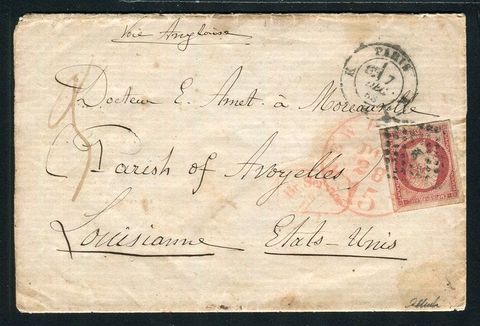 Voie Anglaise
PARIS
7
Docteur E. Amet. à Moreauville
Parish of Avoyelles,
Louisianne Etats-Unis
3
Br. Service